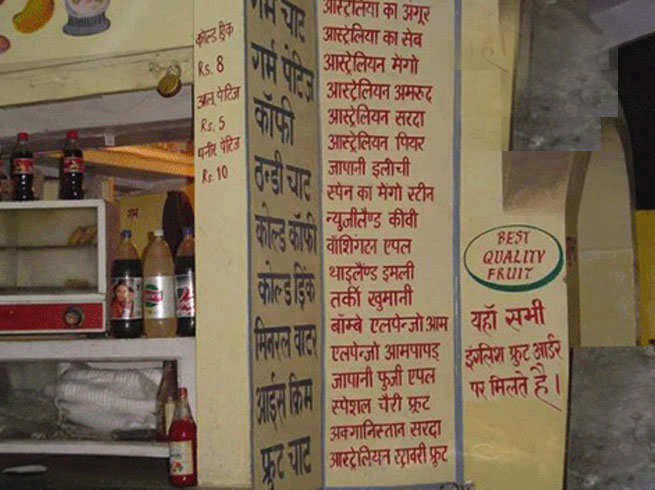 कोल्ड ड्रिंक
Rs. 8
आलू पेटिज
Rs. 5
पनीर पेटिज
Rs. 10
गर्म चाट
गर्म पेटिज़
कॉफी
ठन्डी चाट
कोल्ड कॉफी
कोल्ड ड्रिंक
मिनरल वाटर
आईस क्रिम
फ्रुट चाट
आस्ट्रेलिया का अंगूर
आस्ट्रेलिया का सेव
आस्ट्रेलियन मेंगो
आस्ट्रेलियन अमरुद
आस्ट्रेलियन सरदा
आस्ट्रेलियन पियर
जापानी इलीची
स्पेन का मेंगो स्टीन
न्यूजीलैण्ड कीवी
वॉशिंगटन एपल
थाइलैण्ड इमली
तर्की खुमानी
बॉम्बे एलपेन्जो आम
एलपेन्जो आमपापड़
जापानी फुजी एपल
स्पेशल चैरी फ्रूट
अफ्गानिस्तान सरदा
आस्ट्रेलियन स्ट्राबरी फ्रुट
BEST
QUALITY
FRUIT
यहाँ सभी
इंगलिश फ्रुट आर्डर
पर मिलते है।